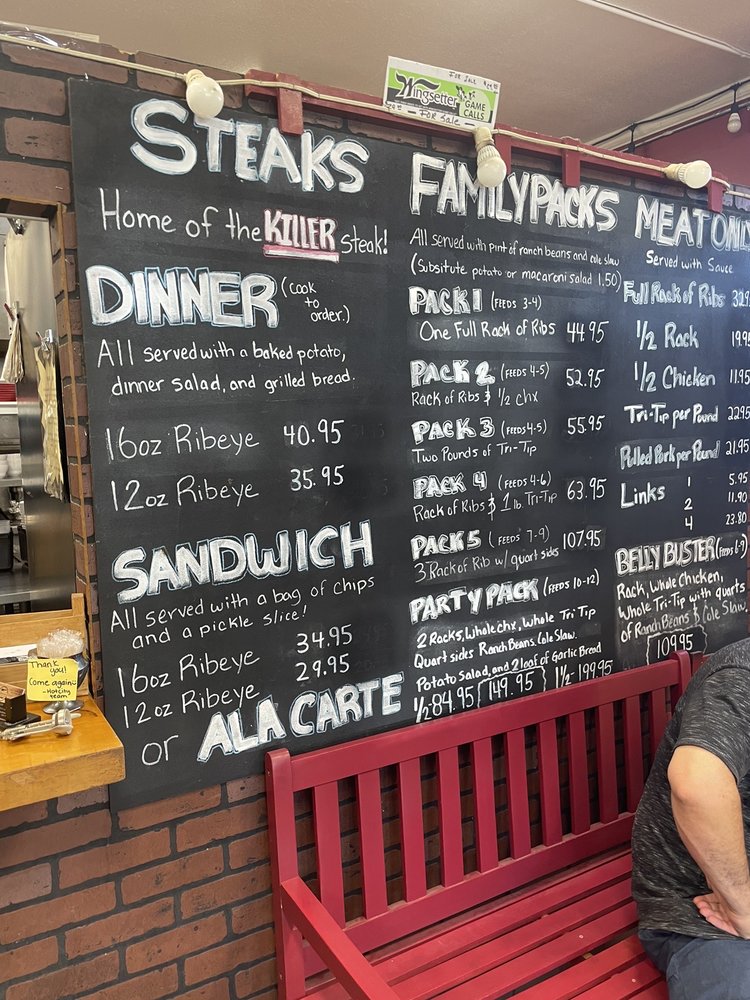 FOR SALE
Wingsetter
GAME
CALLS
FOR SALE
STEAKS
Home of the KILLER Steak!
DINNER (Cook
to
order.)
All served with a baked potato,
dinner salad, and grilled bread.
16oz Ribeye 40.95
12oz Ribeye 35.95
SANDWICH
All served with a bag of chips
and a pickle slice!
16oz Ribeye 34.95
12oz Ribeye 29.95
or ALA CARTE
FAMILY PACKS
All served with pint of ranch beans and cole slaw
(Subsitute potato or macaroni salad 1.50)
PACK 1 (FEEDS 3-4)
One Full Rack of Ribs 44.95
PACK 2 (FEEDS 4-5) 52.95
Rack of Ribs & 1/2 chx
PACK 3 (FEEDS 4-5) 55.95
Two Pounds of Tri-Tip
PACK 4 (FEEDS 4-6) 63.95
Rack of Ribs & 1 lb. Tri-Tip
PACK 5 (FEEDS 7-9) 107.95
3 Rack of Rib w/ quart sides
PARTY PACK (FEEDS 10-12)
2 Racks, Whole Chx, Whole Tri Tip
Quart sides Ranch Beans, Cole Slaw.
Potato Salad, and 2 loaf of Garlic Bread
1/2-84.95 149.95 1 1/2 199.95
MEAT ONLY
Served with Sauce
Full Rack of Ribs
1/2 Rack 19.95
1/2 Chicken 11.95
Tri-Tip per Pound 22.95
Pulled Pork per Pound 21.95
Links 1 5.95
2 11.90
4 23.80
BELLY BUSTER (FEEDS
Rack, Whole Chicken,
Whole Tri-Tip with quarts
of Ranch Beans & Cole Slaw
109.95
Thank
you!
Come again
-Hot City
team